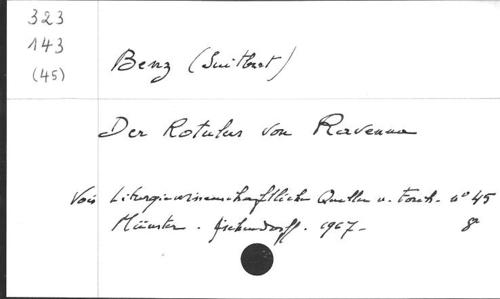 323
143
(45)
Benz (Suitbert)
Der Rotulus von Ravenna
Vois Liturgiewissenschaftliche Quellen u. Forsch. n° 45
Münster. Aschendorff. 1967- 8°